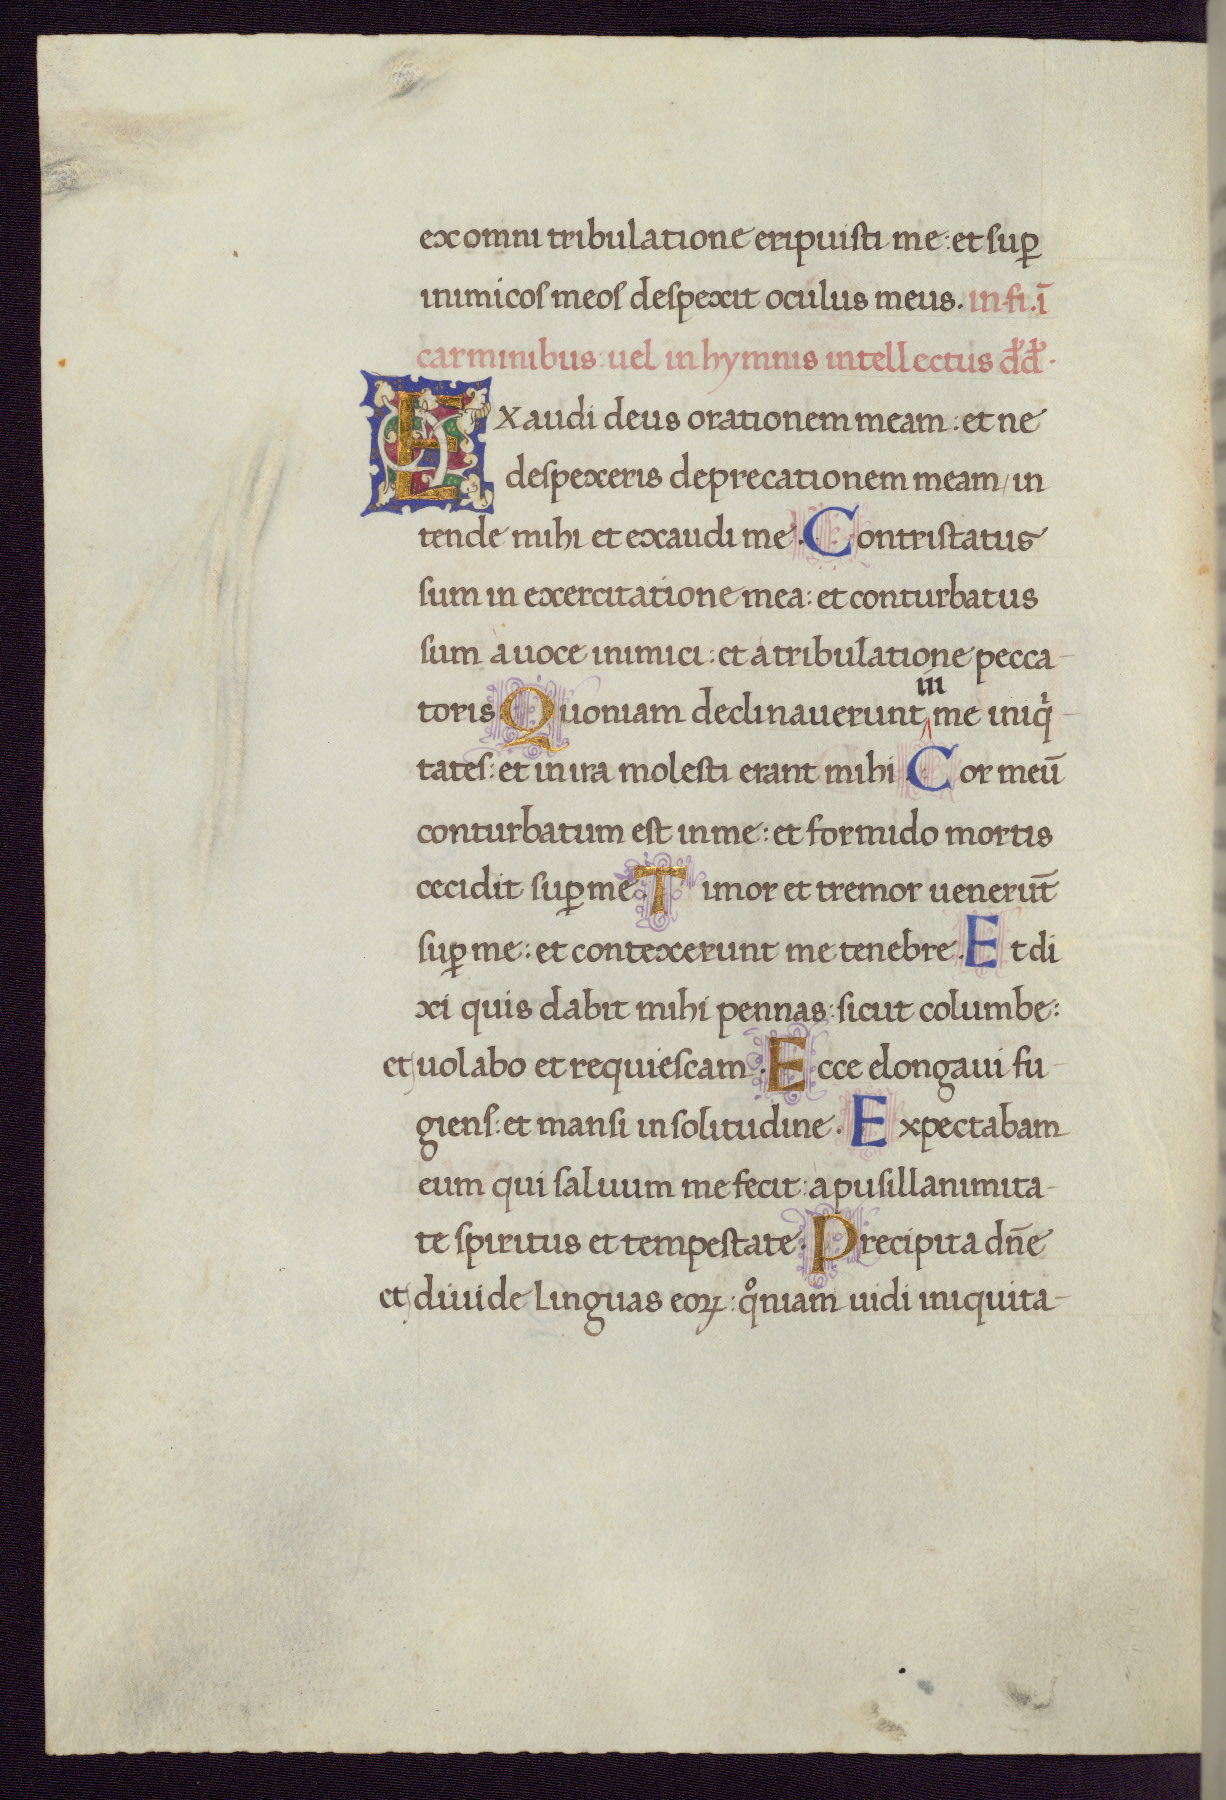 ex omni tribulatione eripuisti me: et sup̲
inimicos meos despexit oculus meus. in fi. ī
carminibus: uel in hymnis intellectus d̄d̄.
Exaudi deus orationem meam: et ne
despexeris deprecationem meam/ in
tende mihi et exaudi me. Contristatus
sum in exercitatione mea: et conturbatus
sum a uoce inimici: et a tribulatione pecca-
toris Quoniam declinauerunt in me iniq̇-
tates: et in ira molesti erant mihi Cor meū
conturbatum est in me: et formido mortis
cecidit sup̲ me. Timor et tremor uenerūt
sup̲ me: et contexerunt me tenebre. Et di
xi quis dabit mihi pennas: sicut columbe:
et uolabo et requiescam. Ecce elongaui fu-
giens: et mansi in solitudine. Expectabam
eum qui saluum me fecit: a pusillanimita-
te spiritus et tempestate. Precipita dn̄e
et diuide linguas eoꝝ: qo̊niam uidi iniquita-